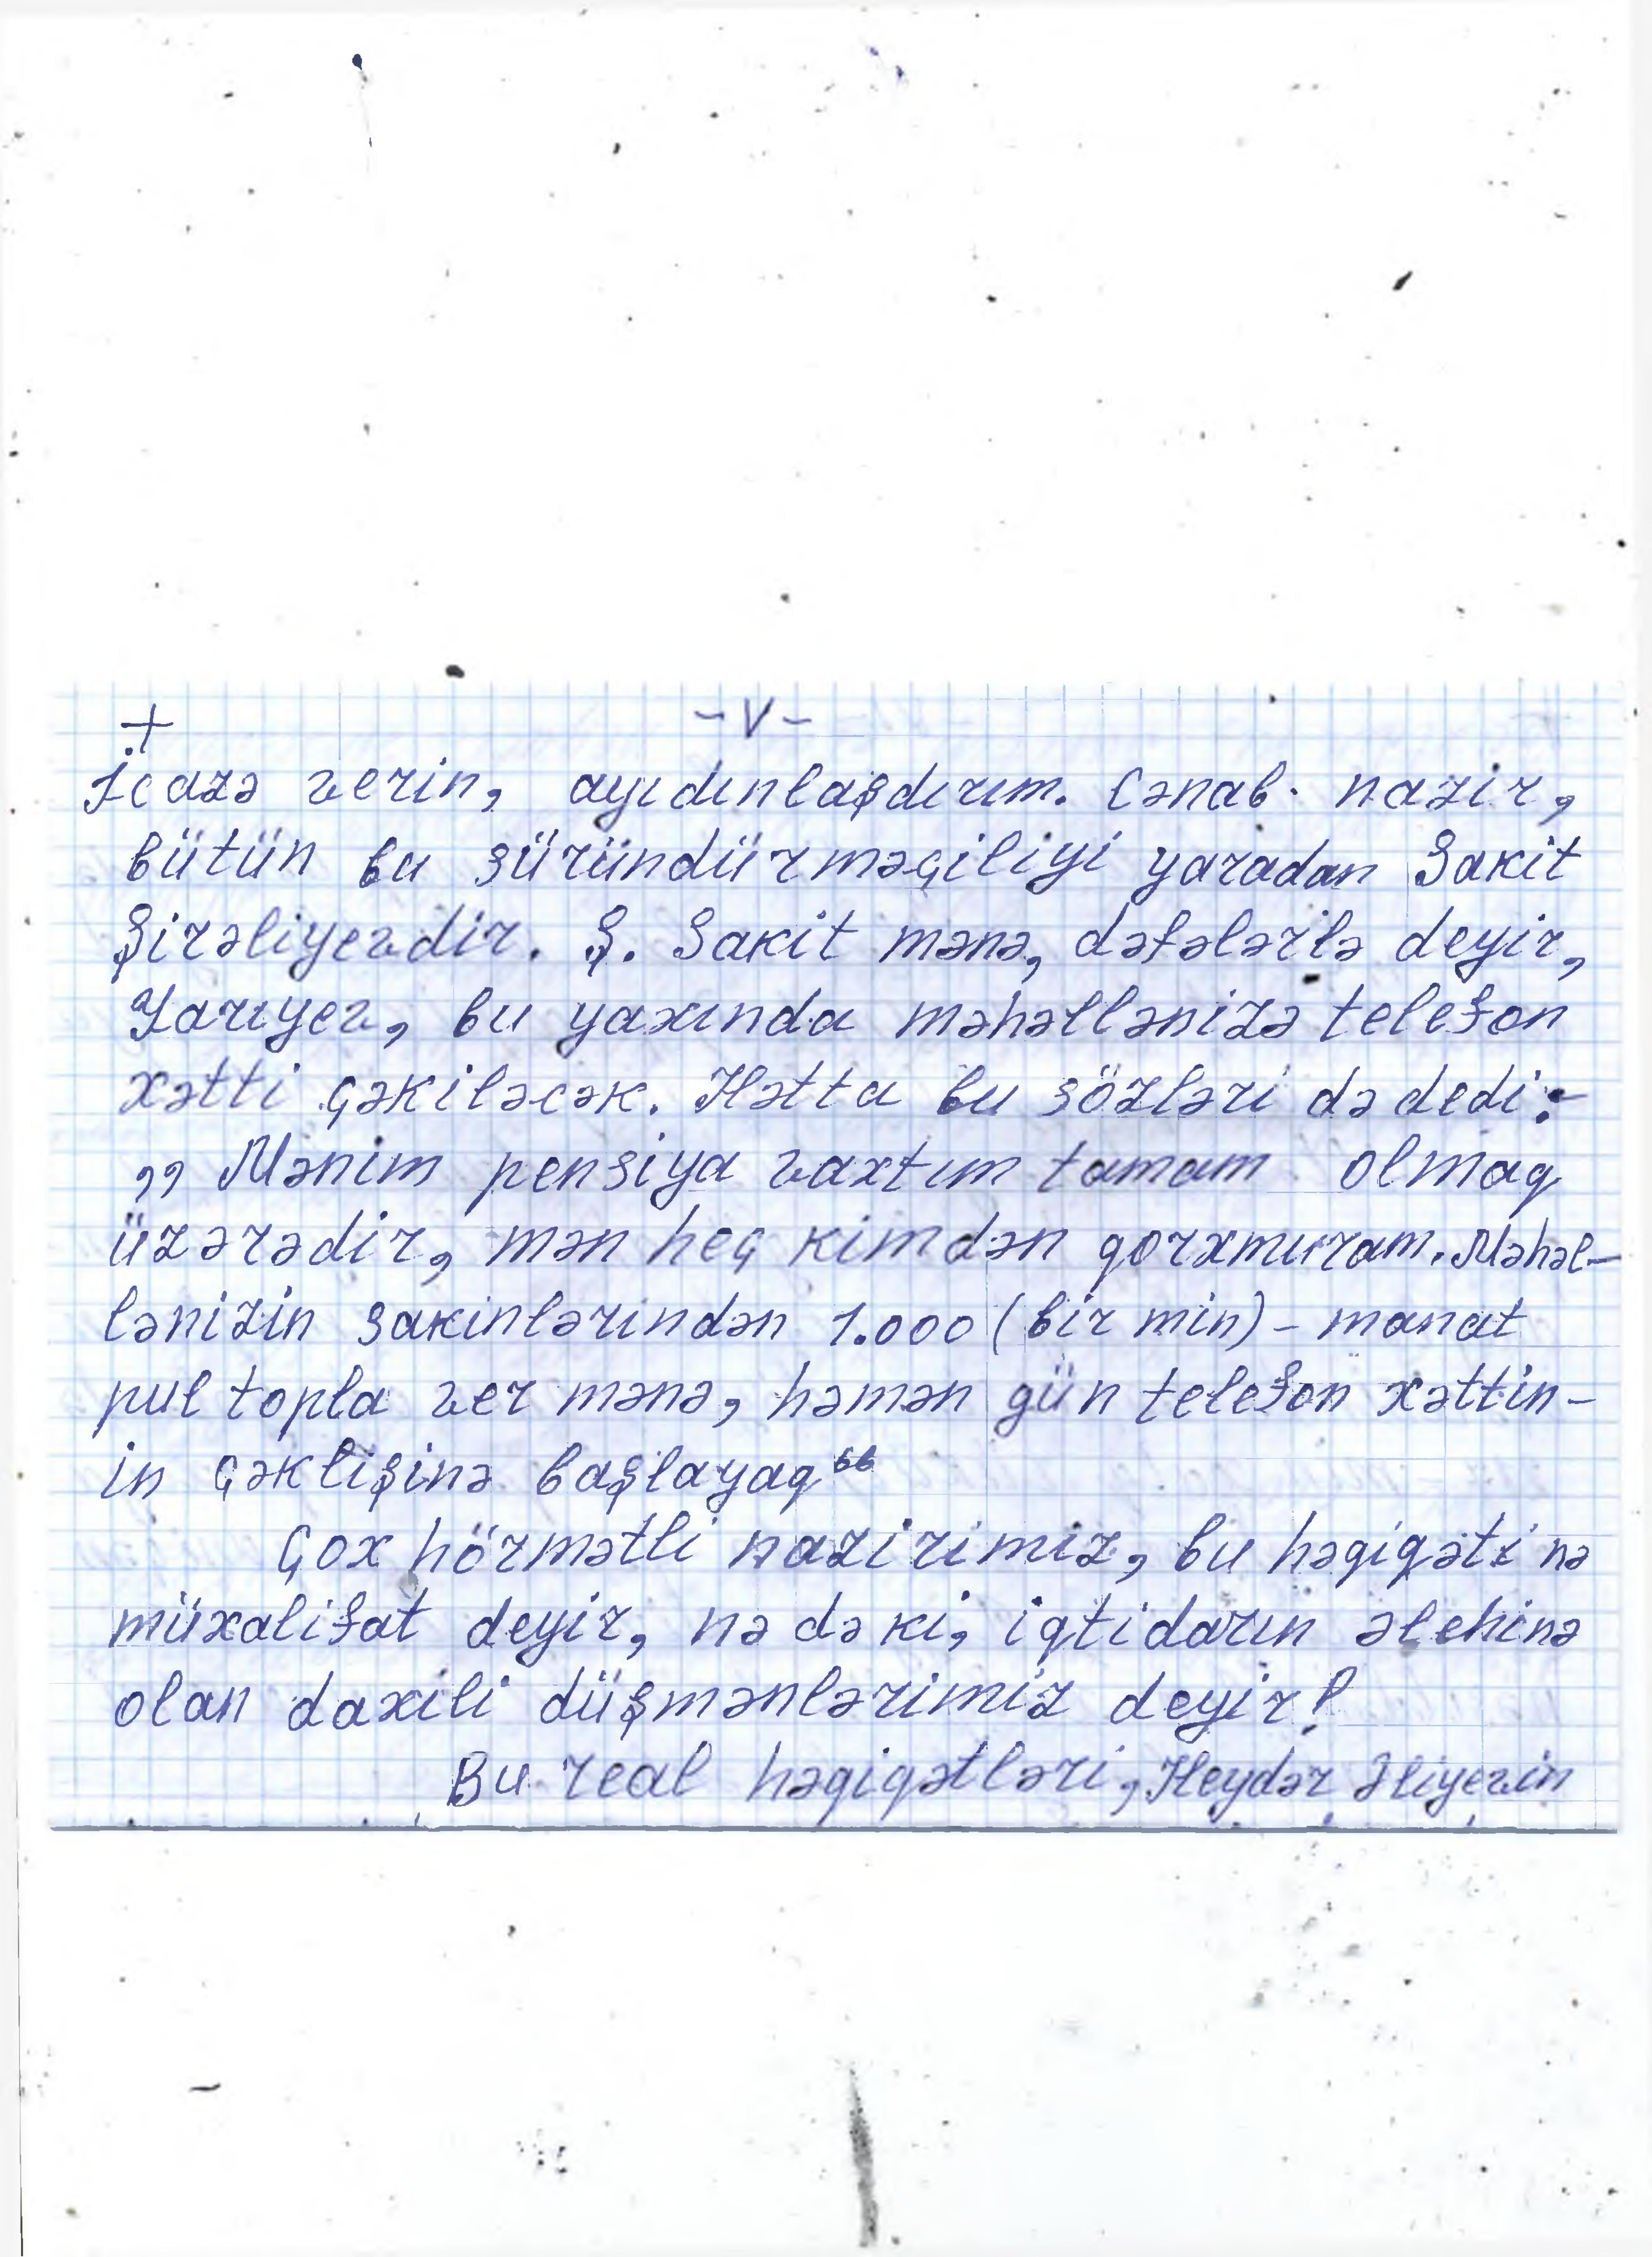 + -V-
İcazə verin, ayıdınlaşdırım. Cənab. nazir,
bütün bu süründürməçiliyi yaradan Sakit
Şirəliyevdir. Ş. Sakit mənə, dəfələrlə deyir,
Yarıyev, bu yaxında məhəllənizə telefon
xətti çəkiləcək. Hətta bu sözləri də dedi:-
,, Mənim pensiya vaxtım tamam olmaq
üzərədir, mən heç kimdən qorxmuram. Məhəl-
lənizin sakinlərindən 1.000 (bir min) - manat
pul topla ver mənə, həmən gün telefon xəttin-
in çəklişinə başlayaq“
Çox hörmətli nazirimiz, bu həqiqəti nə
müxalifat deyir, nə də ki, iqtidarın əlehinə
olan daxili düşmənlərimiz deyir!
Bu real həqiqətləri, Heydər Əliyevin